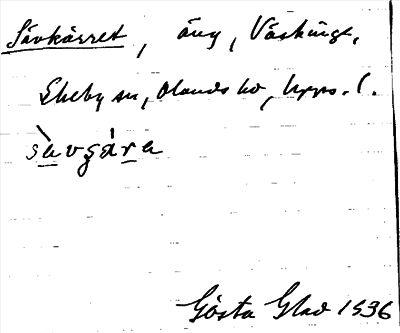 Sävkärret, äng, Väskinge,
Ekeby sn, Olands hd, Upps. l.
sàvgára
Gösta Glad 1936